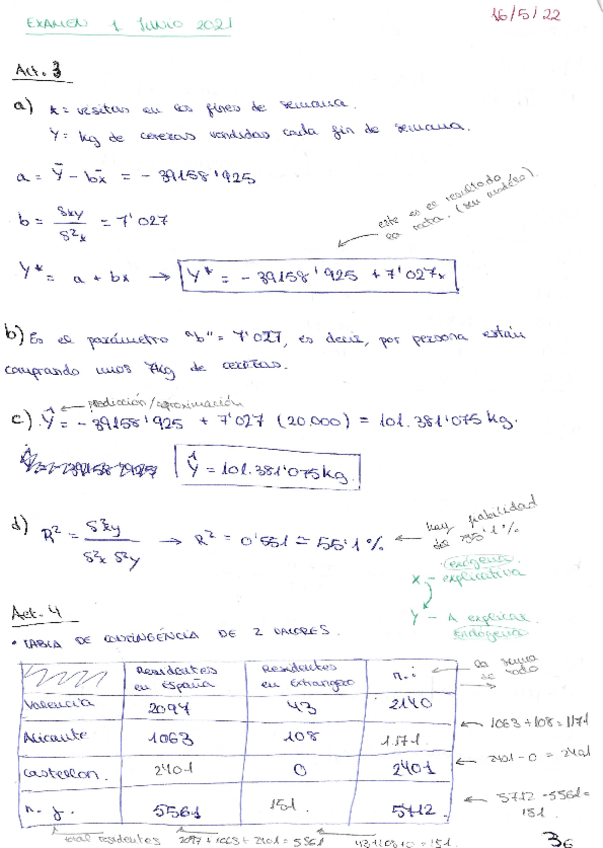 EXAMEN 1 JUNIO 2021
16/5/22
Act. 3
a) x = visitas en los fines de semana.
Y = kg de cerezas vendidas cada fin de semana.
a = Ȳ - bx̄ = - 39158'925
b = Sxy / S²x = 7'027
este es el resultado
la recta. (su modelo).
Y* = a + bx → Y* = - 39158'925 + 7'027x
b) Es el parámetro "b" = 7'027, es decir, por persona están
comprando unos 7kg de cerezas.
predicción/aproximación
c) Ŷ = - 39158'925 + 7'027 (20.000) = 101.381'075 kg.
Ŷ = 101.381'075 kg.
d) R² = S²xy / S²x S²y → R² = 0'551 = 55'1%
hay fiabilidad
de 55'1%
exógena
x - explicativa
Y - A explicar
Endógena
Act. 4
• TABLA DE CONTINGENCIA DE 2 VALORES.
Residentes en España Residentes en Extrangero n.i
la suma
de todo
Valencia 2097 43 2140
Alicante 1063 108 1171
1063 + 108 = 1171
Castellon. 2401 0 2401
2401 - 0 = 2401
n. j. 5561 151. 5712
5712 - 5561 =
151.
total residentes 2097 + 1063 + 2401 = 5561 43 + 108 + 0 = 151.
36